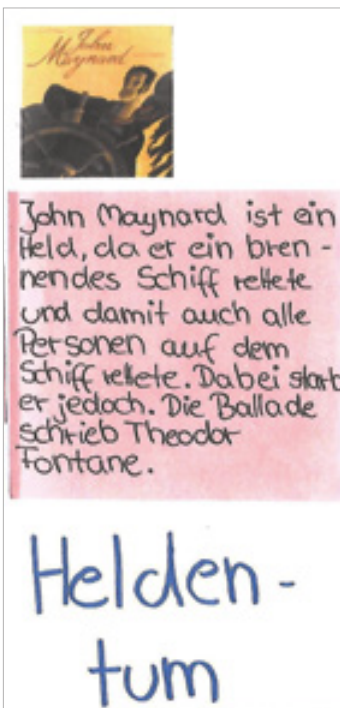 John
Maynard
John Maynard ist ein
Held, da er ein bren-
nendes Schiff rettete
und damit auch alle
Personen auf dem
Schiff rettete. Dabei starb
er jedoch. Die Ballade
schrieb Theodor
Fontane.
Helden-
tum